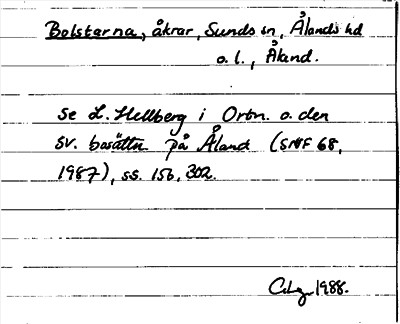 Bolstarna, åkrar, Sunds sn, Ålands hd
o.l., Åland.
Se L. Hellberg i Ortn. o. den
sv. bosättn. på Åland (SNF 68,
1987), ss. 156, 302.
1988.